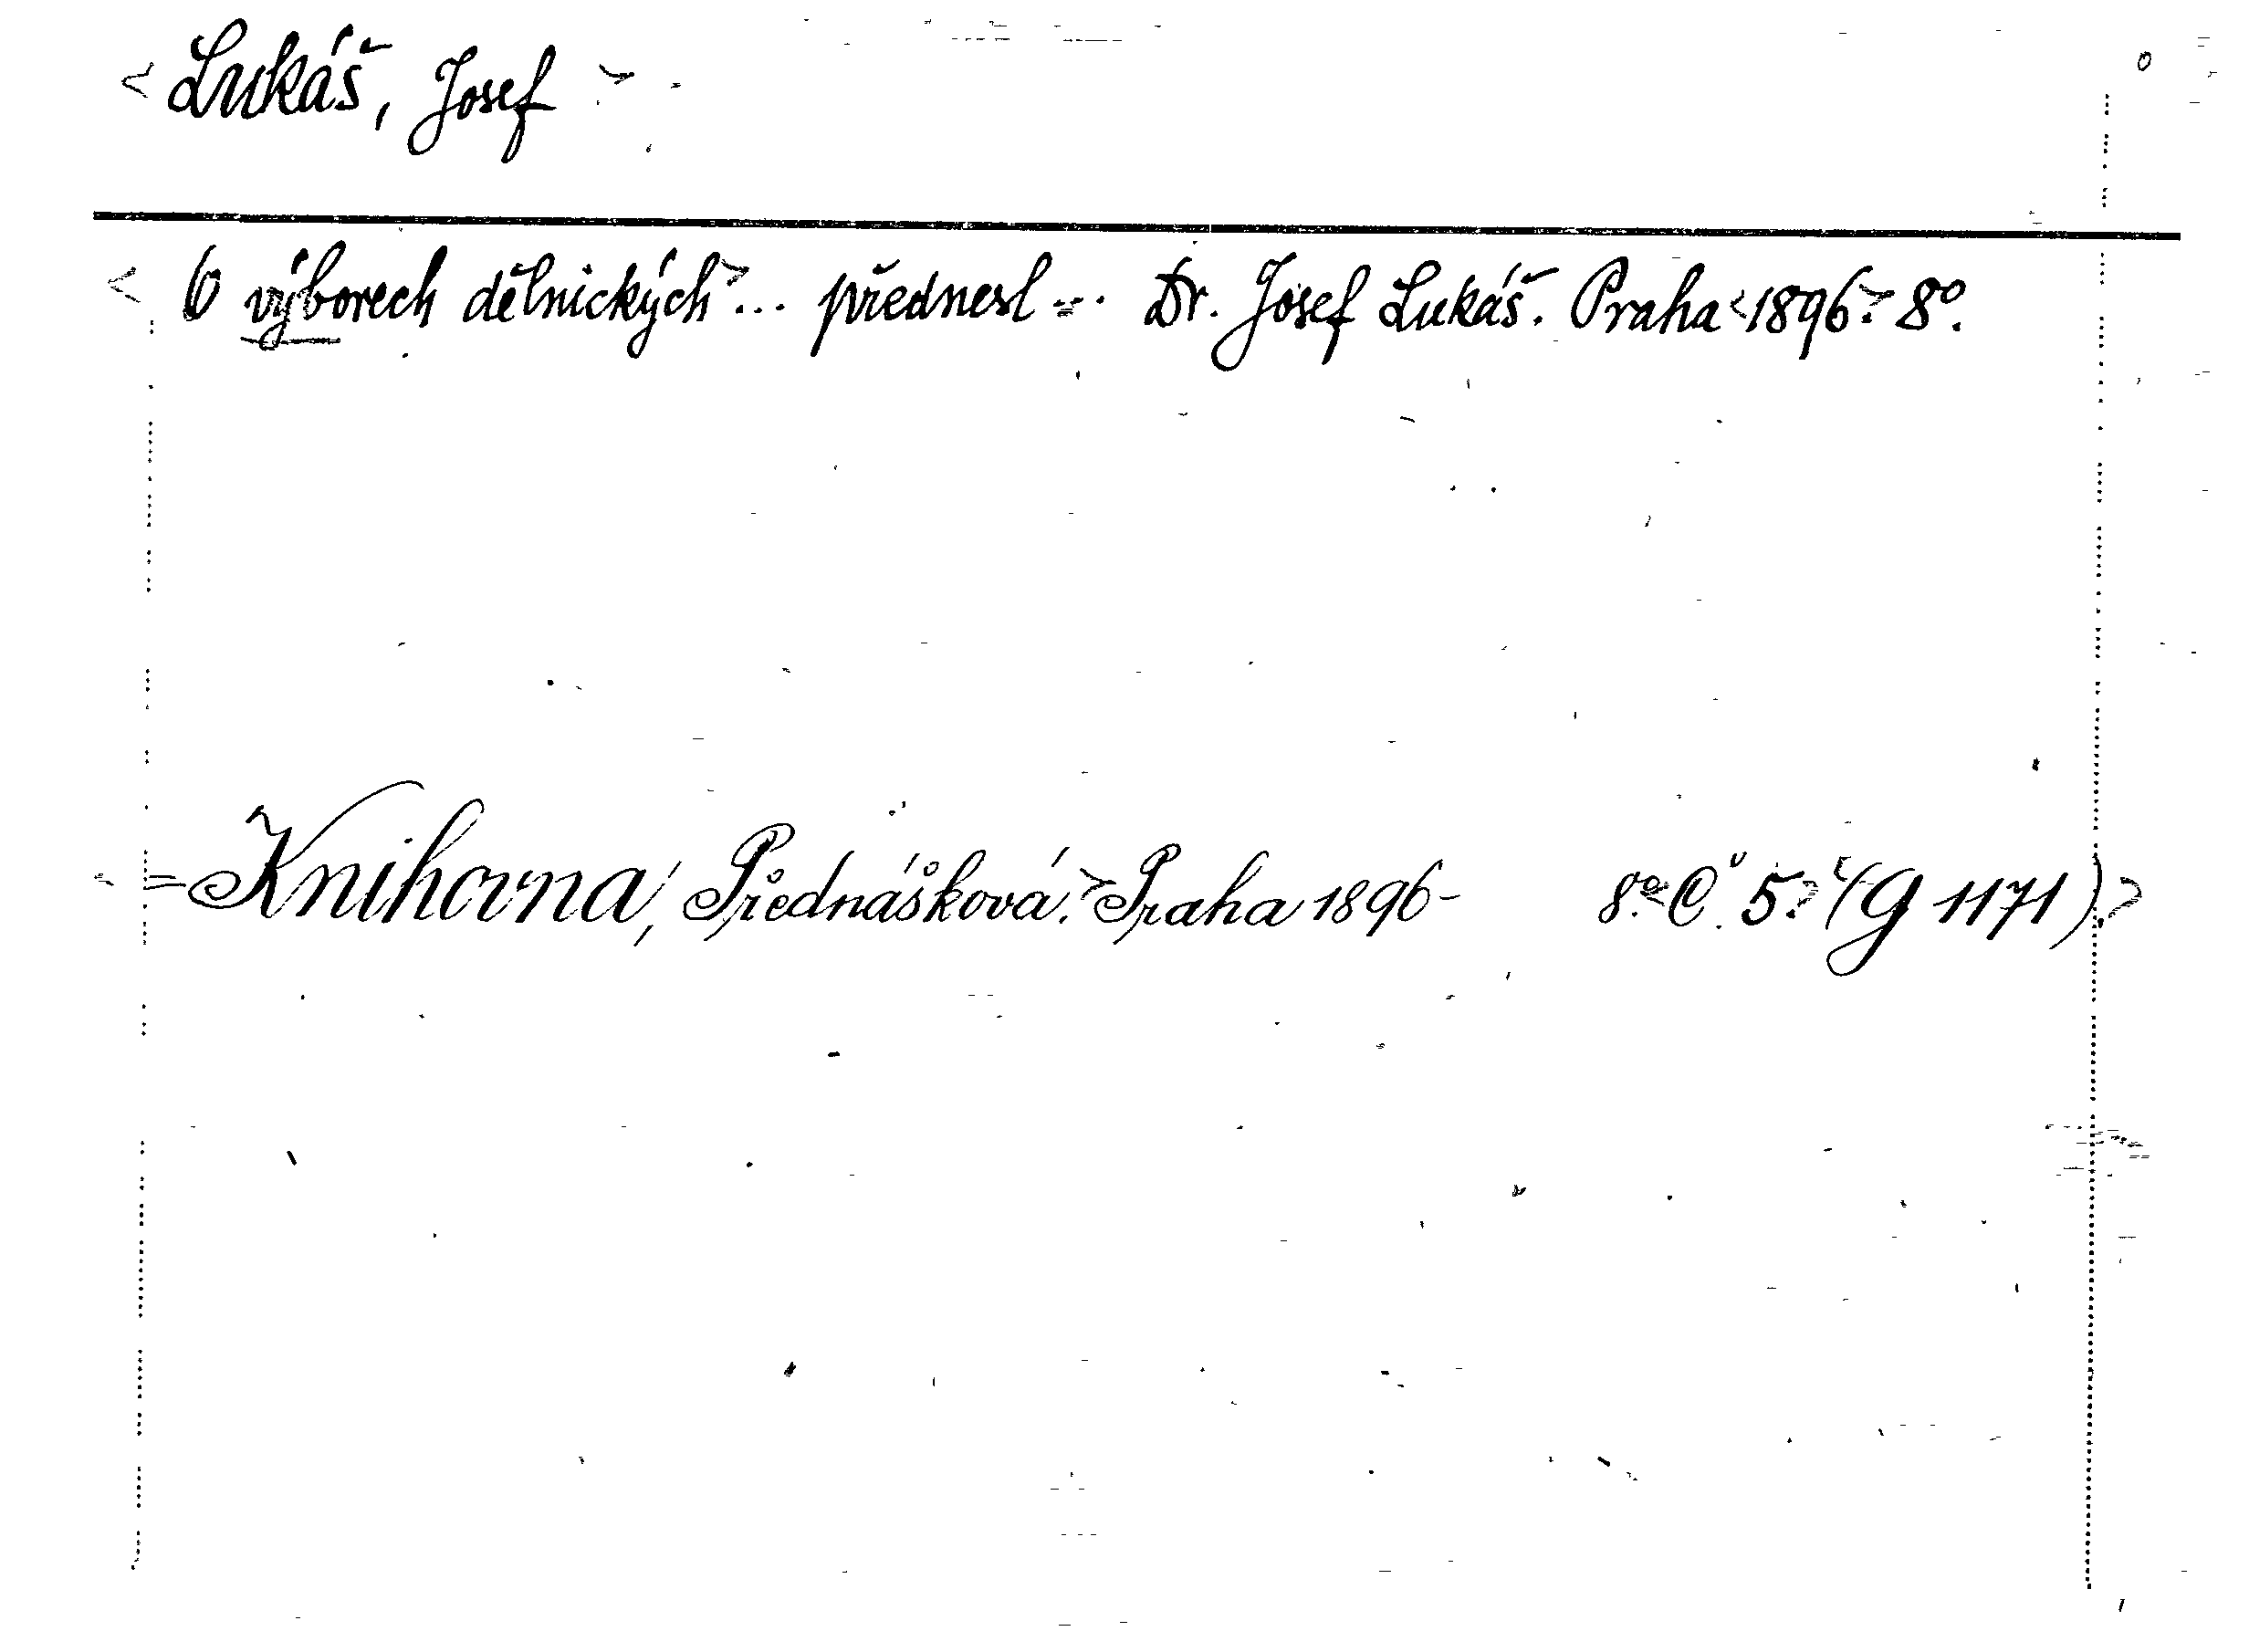 <Lukáš, Josef>
<O výborech dělnických>... přednesl... Dr. Josef Lukáš. Praha <1896>. 8º.
=Knihovna, Přednášková.> Praha 1896- 8º.< Č. 5.> (G 1171).>